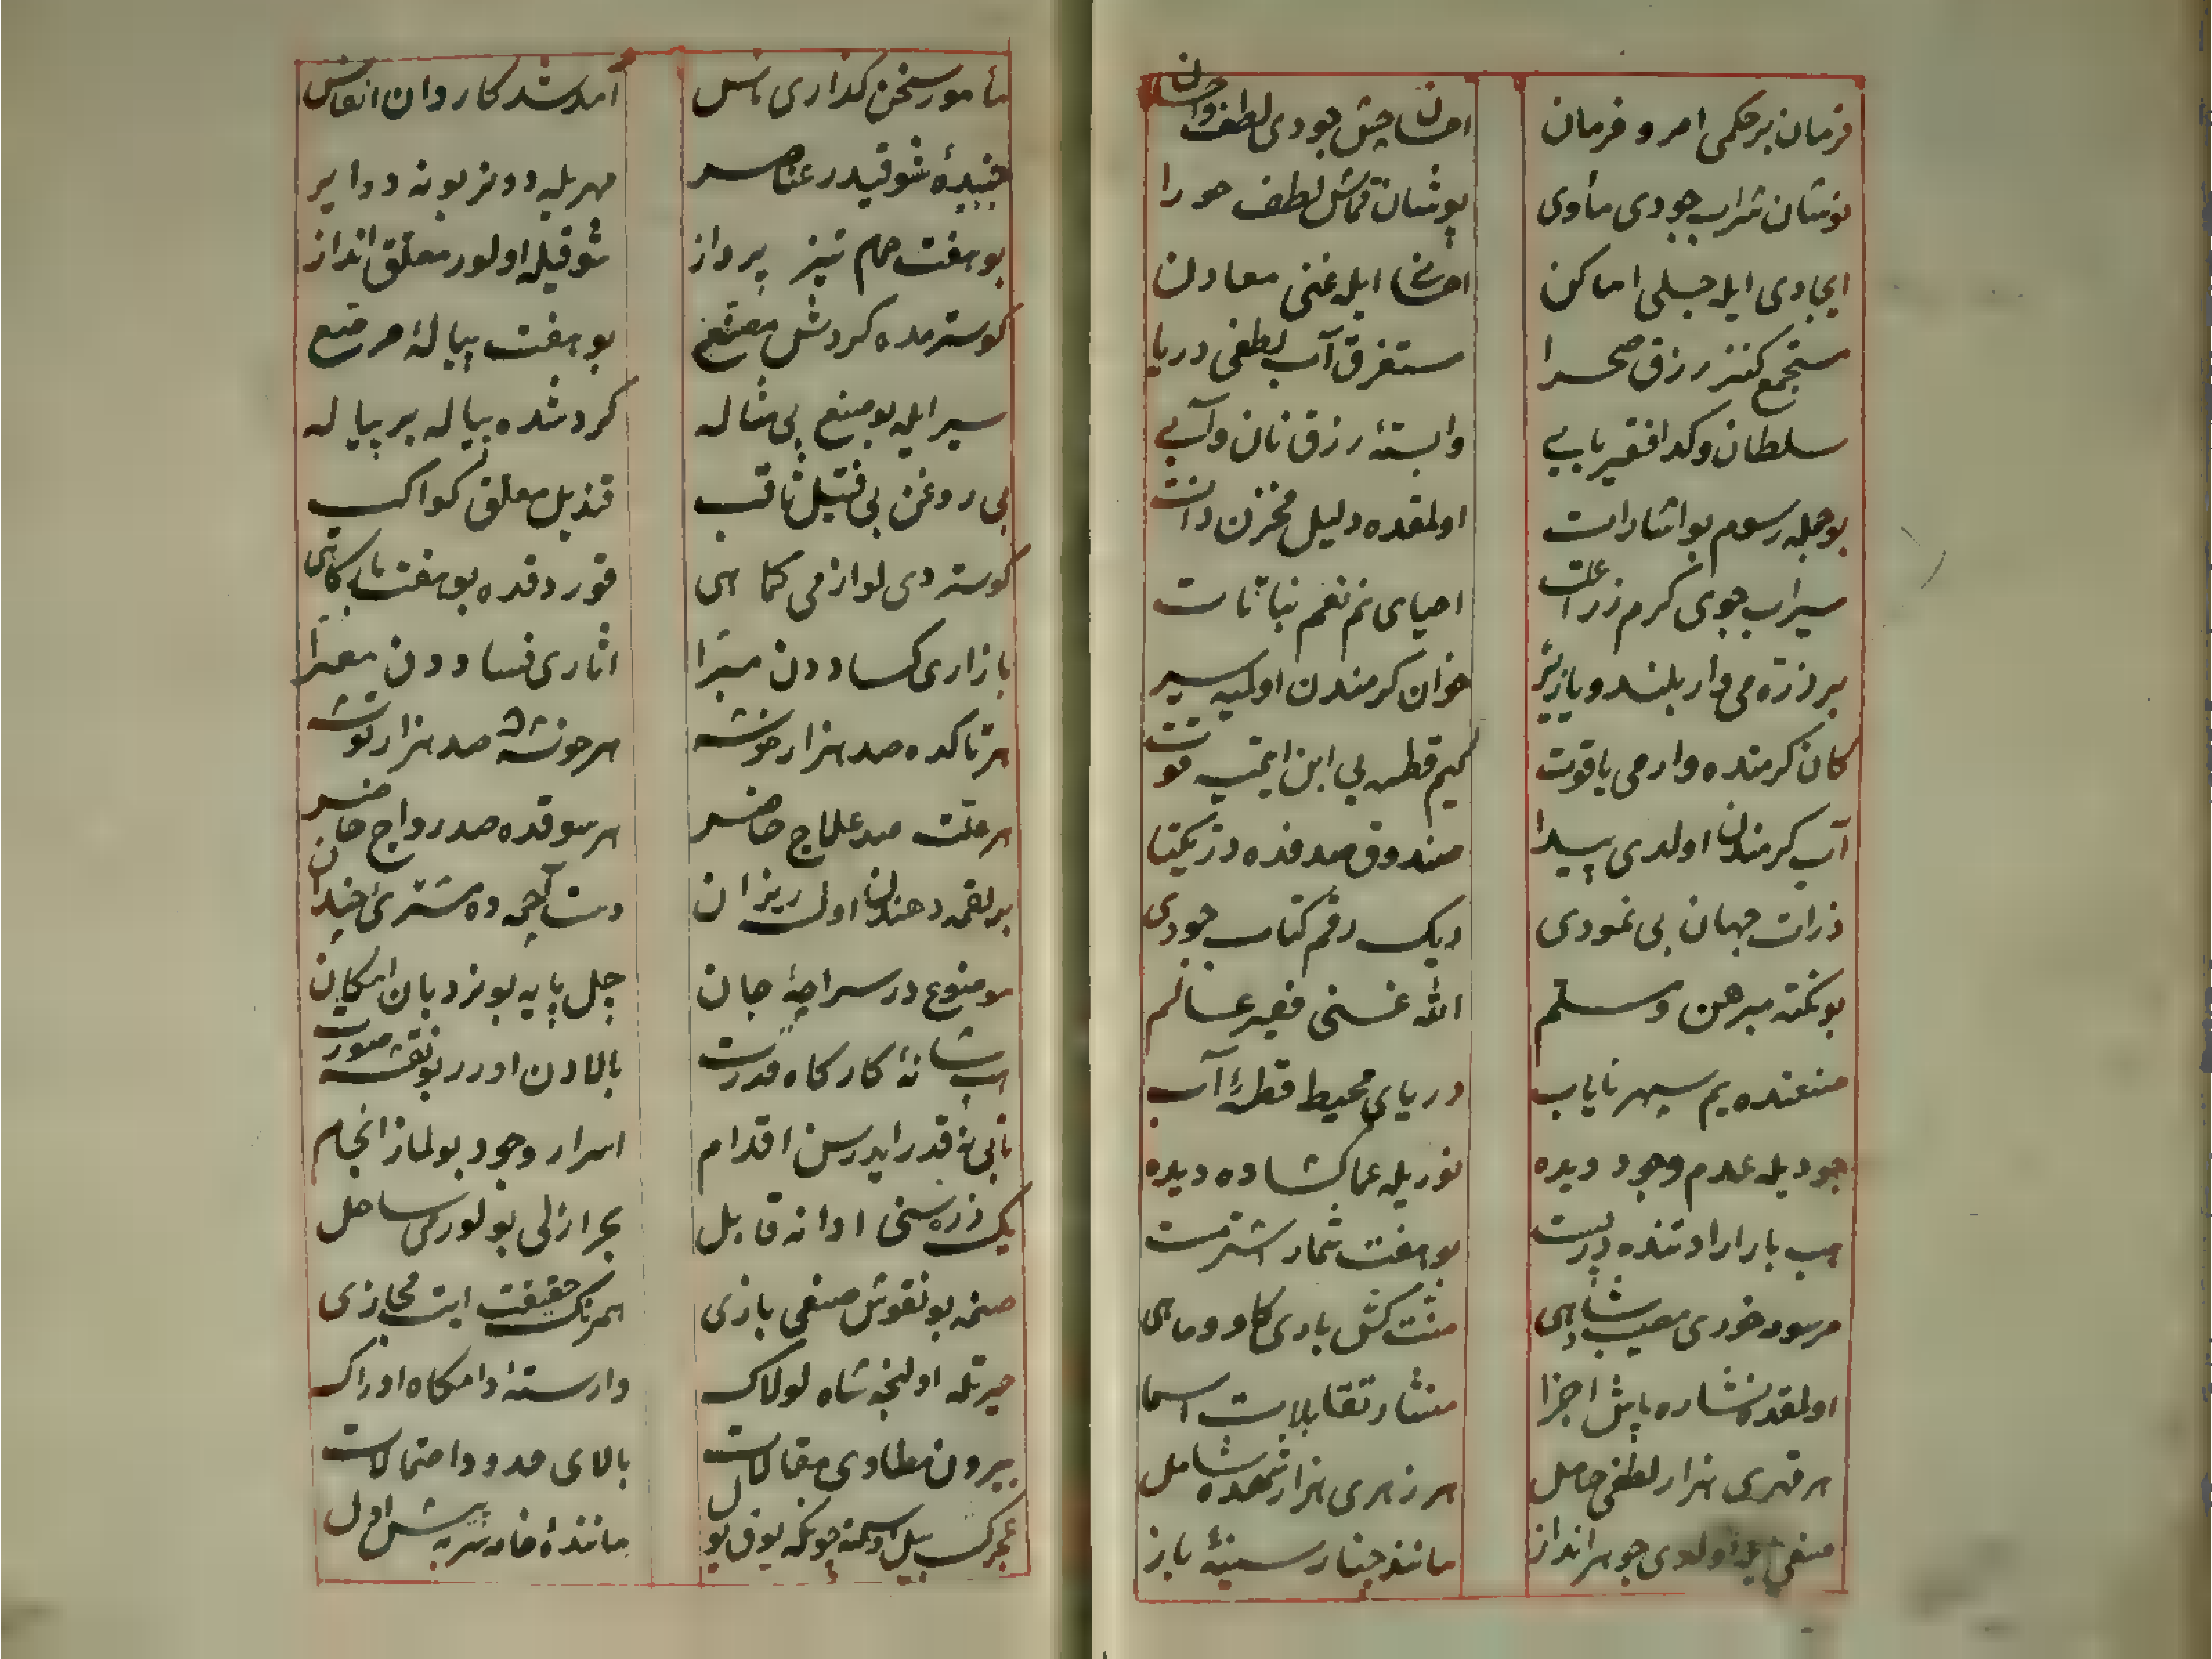 فرمان بر حکمی امر و فرمان
احسان چش جودی لطف و احسان
نوشان شراب جودی مأوی
پوشان قماش لطف حورا
ایجادی ایله جبلی اماکن
احسانی ایله غنی معادن
مستجمع کنز رزق صحرا
مستغرق آب لطفی دریا
سلطان و کدا فقیر بابی
وابستهٔ رزق نان و آبی
بو جمله رسوم بو اشارات
اولمقده دلیل مخزن ذات
سیراب جوی کرم زراعت
احیای نم نعم نباتات
بر ذره می وار بلند و یا زیر
خوان کرمندن اولمیه سیر
کان کرمنده وارمی یاقوت
قوت
آب کرمندن اولدی پیدا
صندوق صدفده در یکتا
ذرات جهان بی نمودی
دیک رقم کتاب جودی
بو نکته مبرهن و مسلم
الله غنی فقیر عالم
صنعنده یم سپهر نایاب
دریای محیط قطرهٔ آب
جودیله عدم وجود دیده
نوریله عما کشاده دیده
هب بارارادتنده در پست
بو هفت شمار اشتر مست
مرسوم خوری شاهی
منت کش باری کاو و ماهی
اولمقده نشاره پاش اجزا
منشار تقابلات اسما
هر قهری هزار لطفی حامل
هر زهری هزار شهده شامل
صنعی ایله اولدی جوهر انداز
مانند چنار سینهٔ باز
مأمور سخن کذاری ناس
آمد شد کاروان انفاس
جنبیدهٔ شوقیدر عناصر
مهریله دونر بو نه دوایر
بو هفت حمام تیز پرواز
شوقیله اولور معلق انداز
کوسترمده کردش مصنع
بو هفت پیالهٔ مرصع
سیر ایله بو صنع بی مثاله
کردشده پیاله بر پیاله
بی روغن بی فتیل ثاقب
قندیل معلق کواکب
کوستردی لوازمی کماهی
قوردقده بو هفت بارکاهی
بازاری کساددن مبرا
اثاری فساددن معرا
هر تاکده صد هزار خوشه
هر خوشه صد هزار توشه
هر علت صد علاج حاضر
هر سوقده صد رواج حاضر
بر لقمه دهندن اولسه ریزان
دست آجمده مشتری خندان
موضوع در سراچهٔ جان
چل پایه بو نردبان امکان
هب شانهٔ کارکاه قدرت
بالادن اورر بو نقشه صورت
نابی نه قدر ایدرسن اقدام
اسرار وجود بولماز انجام
یک ذره سخی ادا نه قابل
بحر ازلی بولورمی ساحل
صنمه بو نقوش صنعی بازی
همرنک حقیقت ایت مجازی
حیرتله اولنجه شاه لولاک
وارستهٔ دامکاه ادراک
بیرون مطاوی مقالات
بالای حدود احتمالات
عجزک بیل چونکه یوق یول
مانندهٔ خامه سر بپیش اول